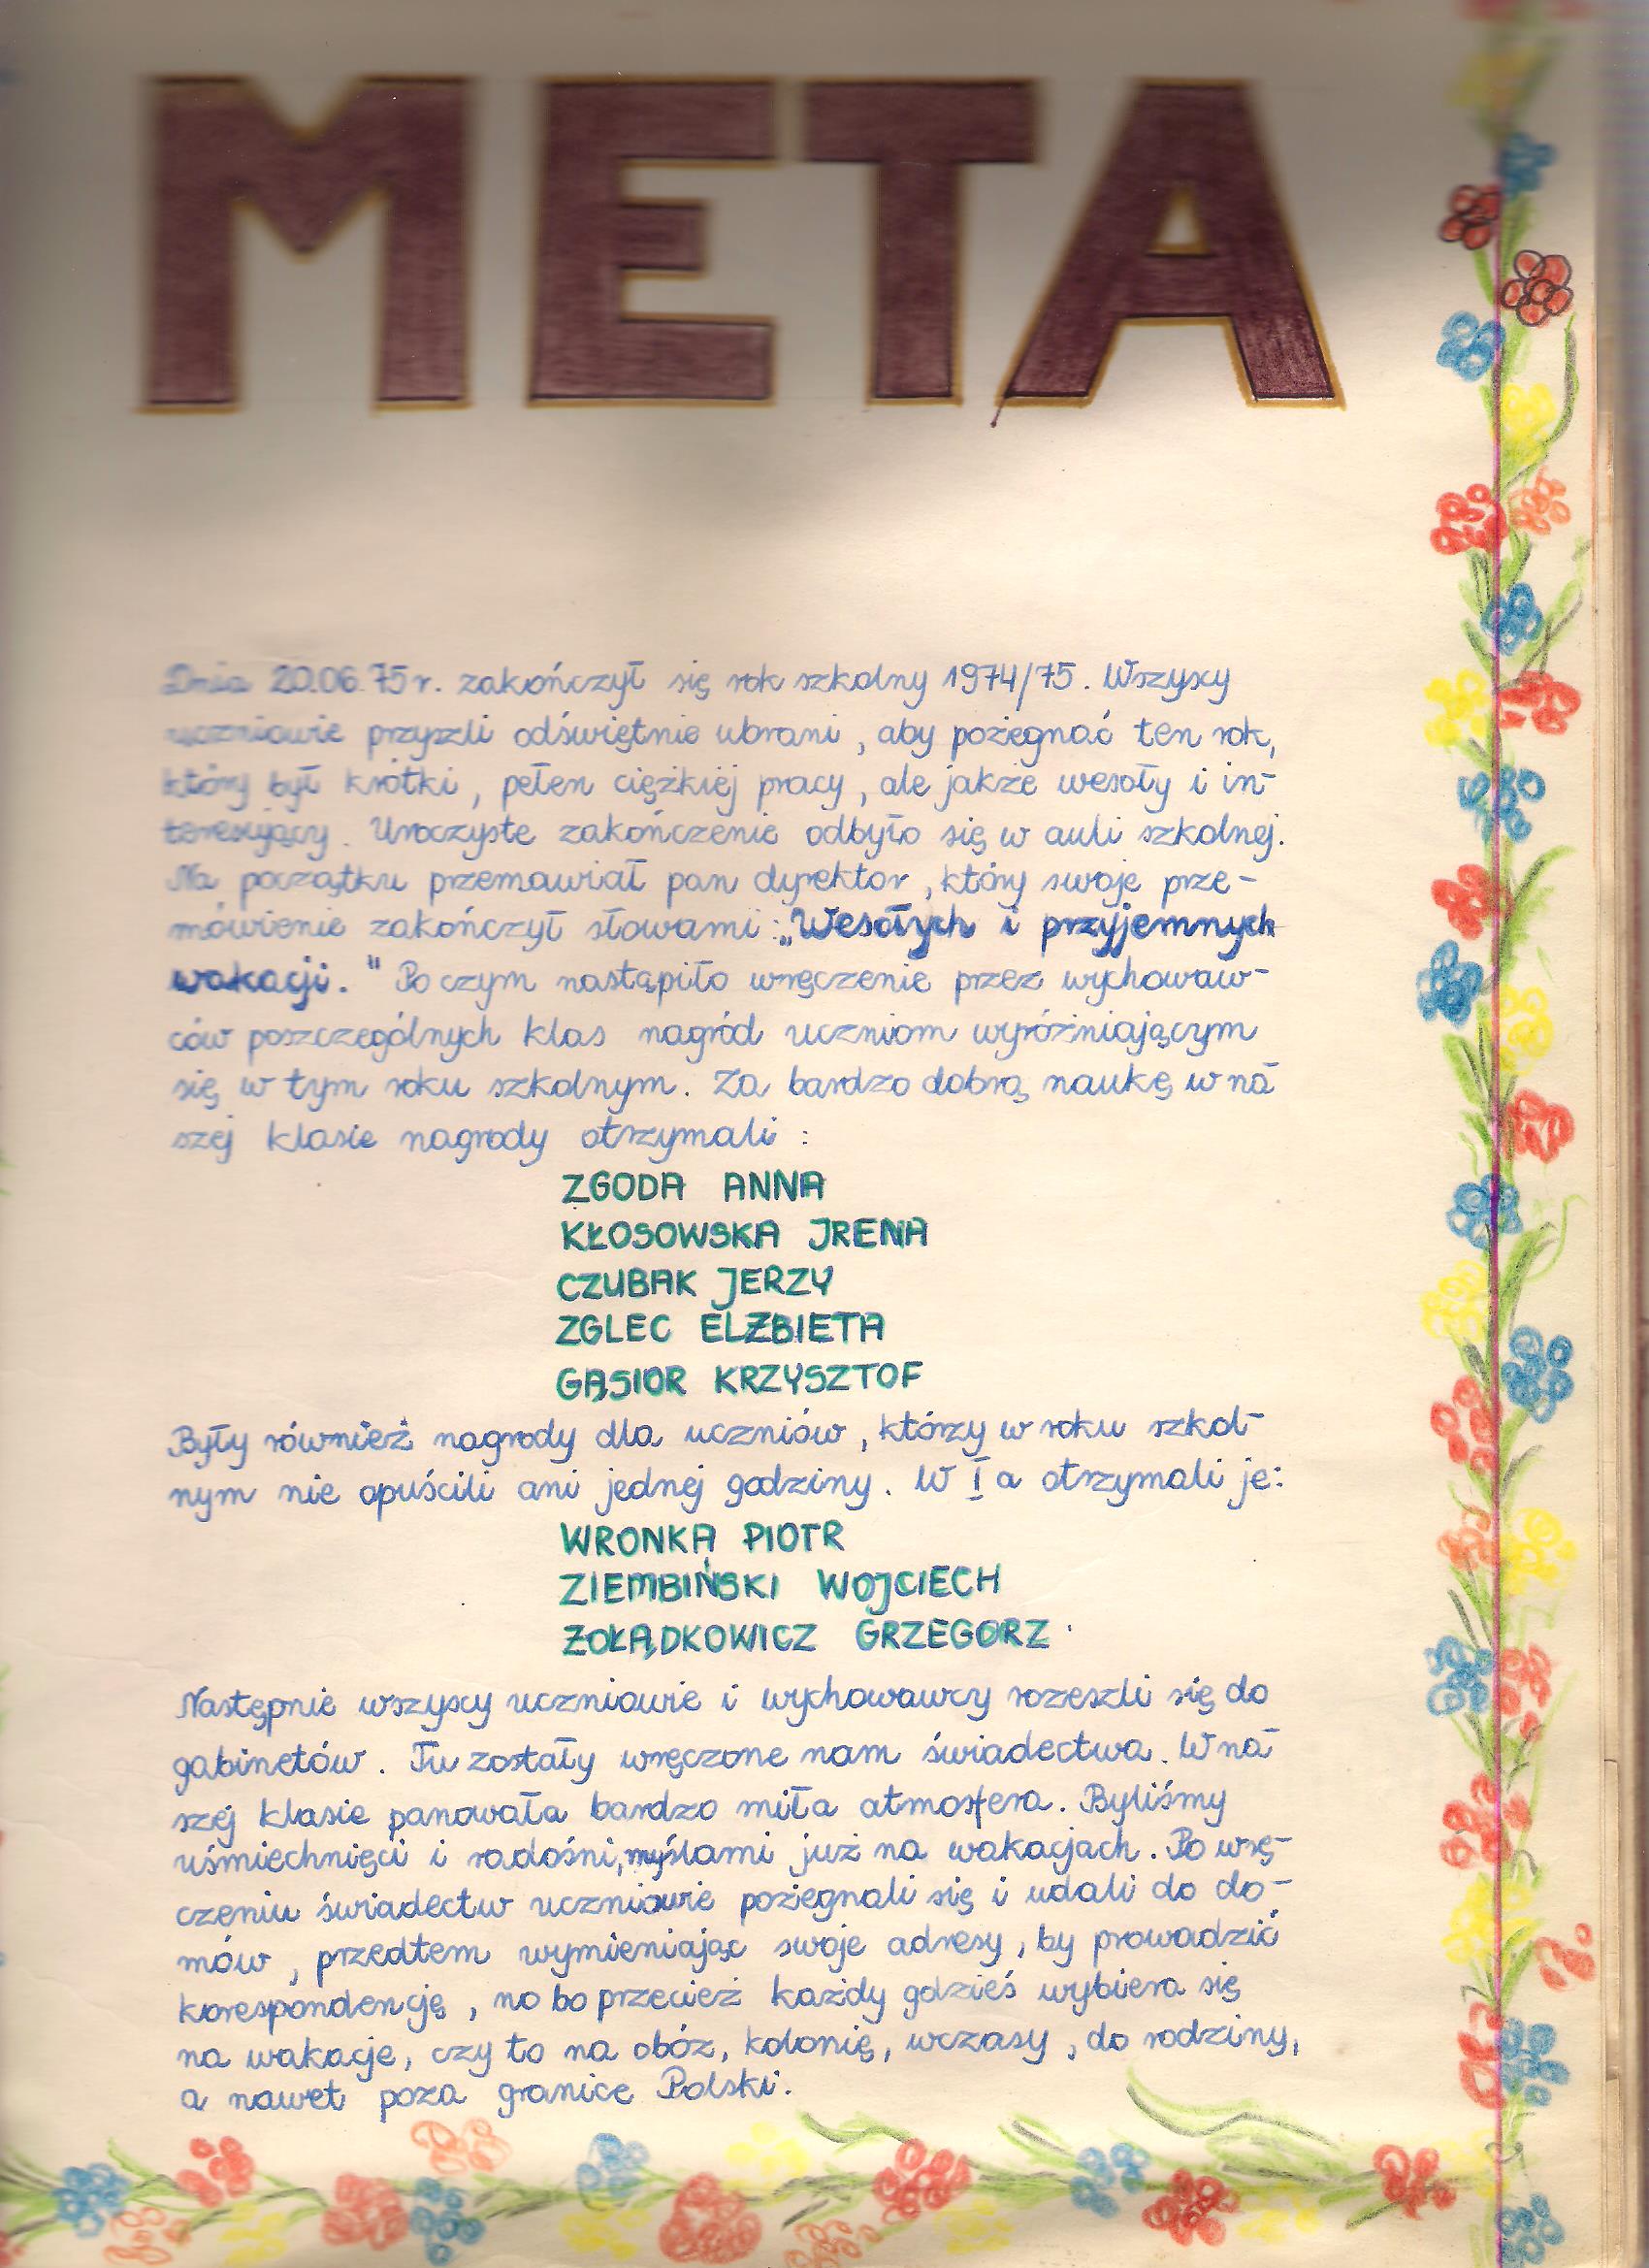 META
Dnia 20.06.75r. zakończył się rok szkolny 1974/75. Wszyscy
uczniowie przyszli odświętnie ubrani, aby pożegnać ten rok,
który był krótki, pełen ciężkiej pracy, ale jakże wesoły i in-
teresujący. Uroczyste zakończenie odbyło się w auli szkolnej.
Na początku przemawiał pan dyrektor, który swoje prze-
mówienie zakończył słowami: „Wesołych i przyjemnych
wakacji." Po czym nastąpiło wręczenie przez wychowaw-
ców poszczególnych klas nagród uczniom wyróżniającym
się w tym roku szkolnym. Za bardzo dobrą naukę w na-
szej klasie nagrody otrzymali:
ZGODA ANNA
KŁOSOWSKA IRENA
CZUBAK JERZY
ZGLEC ELŻBIETA
GĄSIOR KRZYSZTOF
Były również nagrody dla uczniów, którzy w roku szkol-
nym nie opuścili ani jednej godziny. W I a otrzymali je:
WRONKA PIOTR
ZIEMBIŃSKI WOJCIECH
ŻOŁĄDKOWICZ GRZEGORZ.
Następnie wszyscy uczniowie i wychowawcy rozeszli się do
gabinetów. Tu zostały wręczone nam świadectwa. W na-
szej klasie panowała bardzo miła atmosfera. Byliśmy
uśmiechnięci i radośni, myślami już na wakacjach. Po wrę-
czeniu świadectw uczniowie pożegnali się i udali do do-
mów, przedtem wymieniając swoje adresy, by prowadzić
korespondencję, no bo przecież każdy gdzieś wybiera się
na wakacje, czy to na obóz, kolonię, wczasy, do rodziny,
a nawet poza granice Polski.